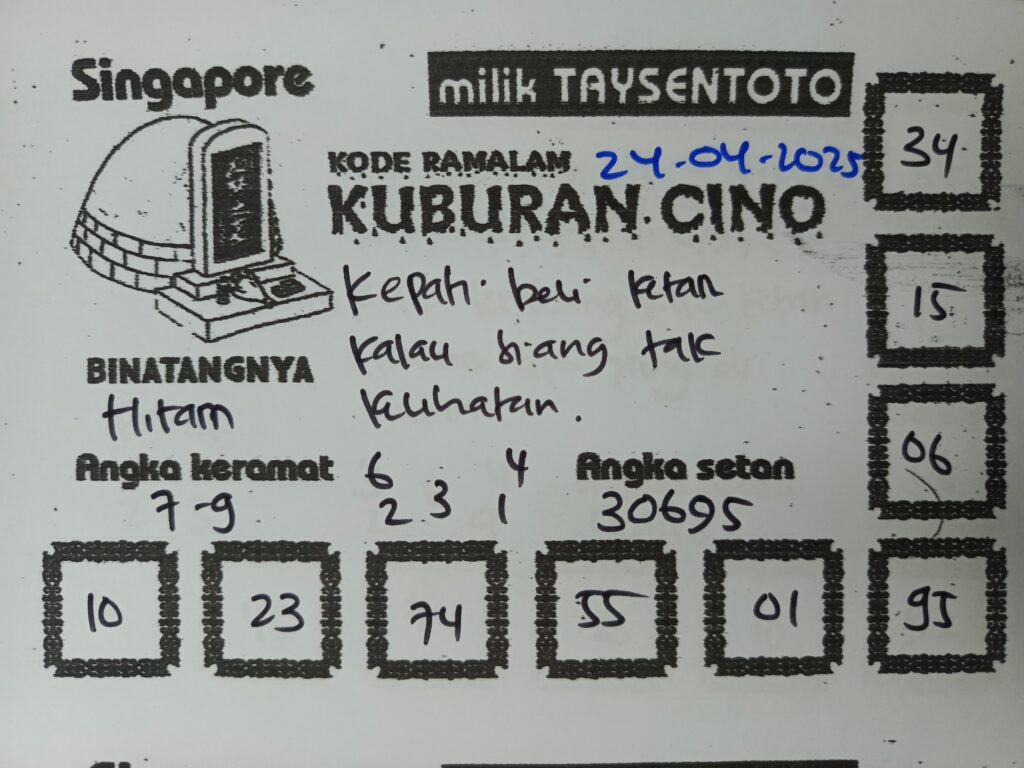 Singapore
milik TAYSENTOTO
KODE RAMALAM 24-04-2025
KUBURAN CINO
34
Kepati beli ketan
kalau siang tak
kelihatan.
15
BINATANGNYA
Hitam
06
Angka keramat
7-9
6 4
2 3 1
Angka setan
30695
10 23 74 55 01 95